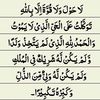 لَا حَوْلَ وَلَا قُوَّةَ إِلَّا بِاللَّهِ
تَوَكَّلْتُ عَلَى الْحَيِّ الَّذِي لَا يَمُوتُ
وَالْحَمْدُ لِلَّهِ الَّذِي لَمْ يَتَّخِذْ وَلَدًا
وَلَمْ يَكُنْ لَهُ شَرِيكٌ فِي الْمُلْكِ
وَلَمْ يَكُنْ لَهُ وَلِيٌّ مِنَ الذُّلِّ
وَكَبِّرْهُ تَكْبِيرًا